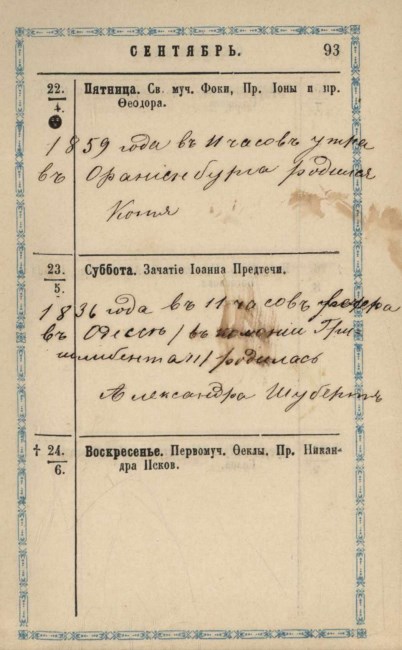 СЕНТЯБРЬ. 93
22.
4.
Пятница. Св. муч. Фоки, Пр. Іоны и пр.
Ѳеодора.
1859 года въ 11 часовъ утра
въ Ораніенбурга родился
Коля
23.
5.
Суббота. Зачатіе Іоанна Предтечи.
1836 года въ 11 часовъ
въ Одессѣ / въ колоніи
родилась
Александра Шубертъ
† 24.
6.
Воскресенье. Первомуч. Ѳеклы, Пр. Никан-
дра Псков.